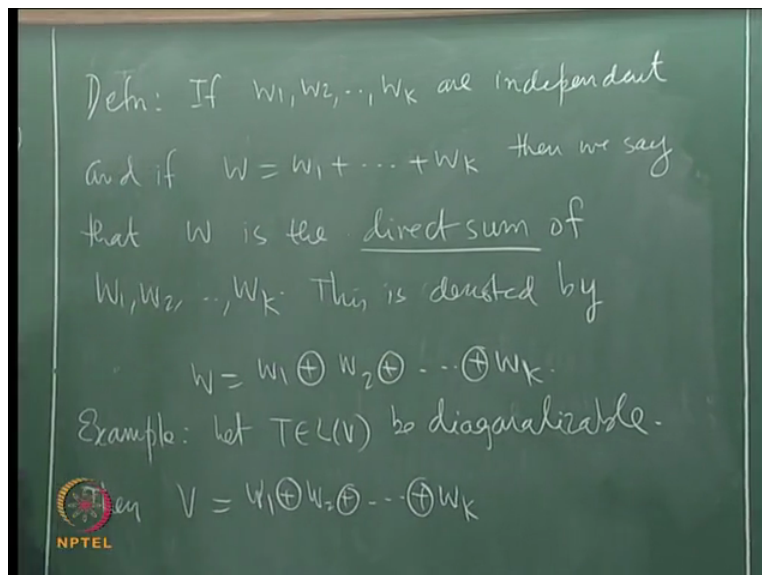 Defn: If W1, W2, .., WK are independent
and if W = W1 + ... + WK then we say
that W is the direct sum of
W1, W2, .., WK. This is denoted by
W = W1 ⊕ W2 ⊕ ... ⊕ WK.
Example: Let T∈L(V) be diagonalizable.
Then V = W1 ⊕ W2 ⊕ ... ⊕ WK
NPTEL